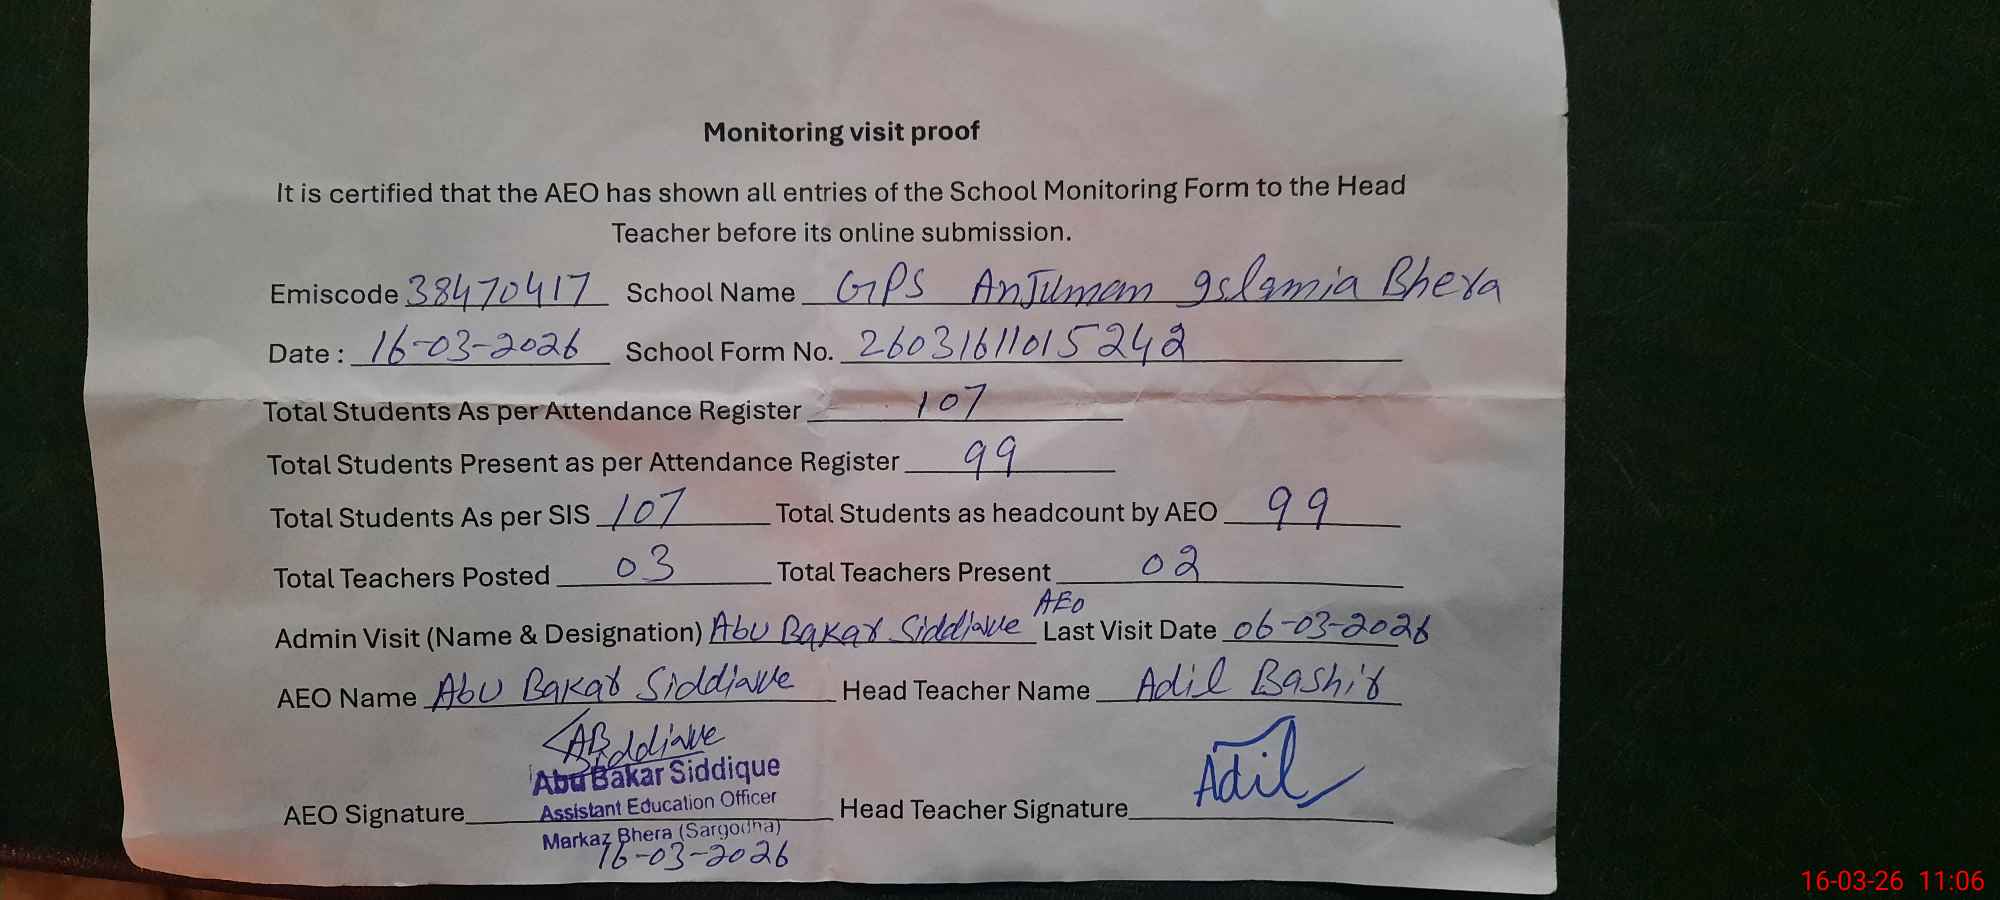 Monitoring visit proof
It is certified that the AEO has shown all entries of the School Monitoring Form to the Head
Teacher before its online submission.
Emiscode 38470417 School Name GPS Anjuman Islamia Bhera
Date : 16-03-2026 School Form No. 26031611015242
Total Students As per Attendance Register 107
Total Students Present as per Attendance Register 99
Total Students As per SIS 107 Total Students as headcount by AEO 99
Total Teachers Posted 03 Total Teachers Present 02
Admin Visit (Name & Designation) Abu Bakar Siddique AEO Last Visit Date 06-03-2026
AEO Name Abu Bakar Siddique Head Teacher Name Adil Bashir
ABddique
Abu Bakar Siddique
Assistant Education Officer
AEO Signature Head Teacher Signature Adil
Markaz Bhera (Sargodha)
16-03-2026
16-03-26 11:06